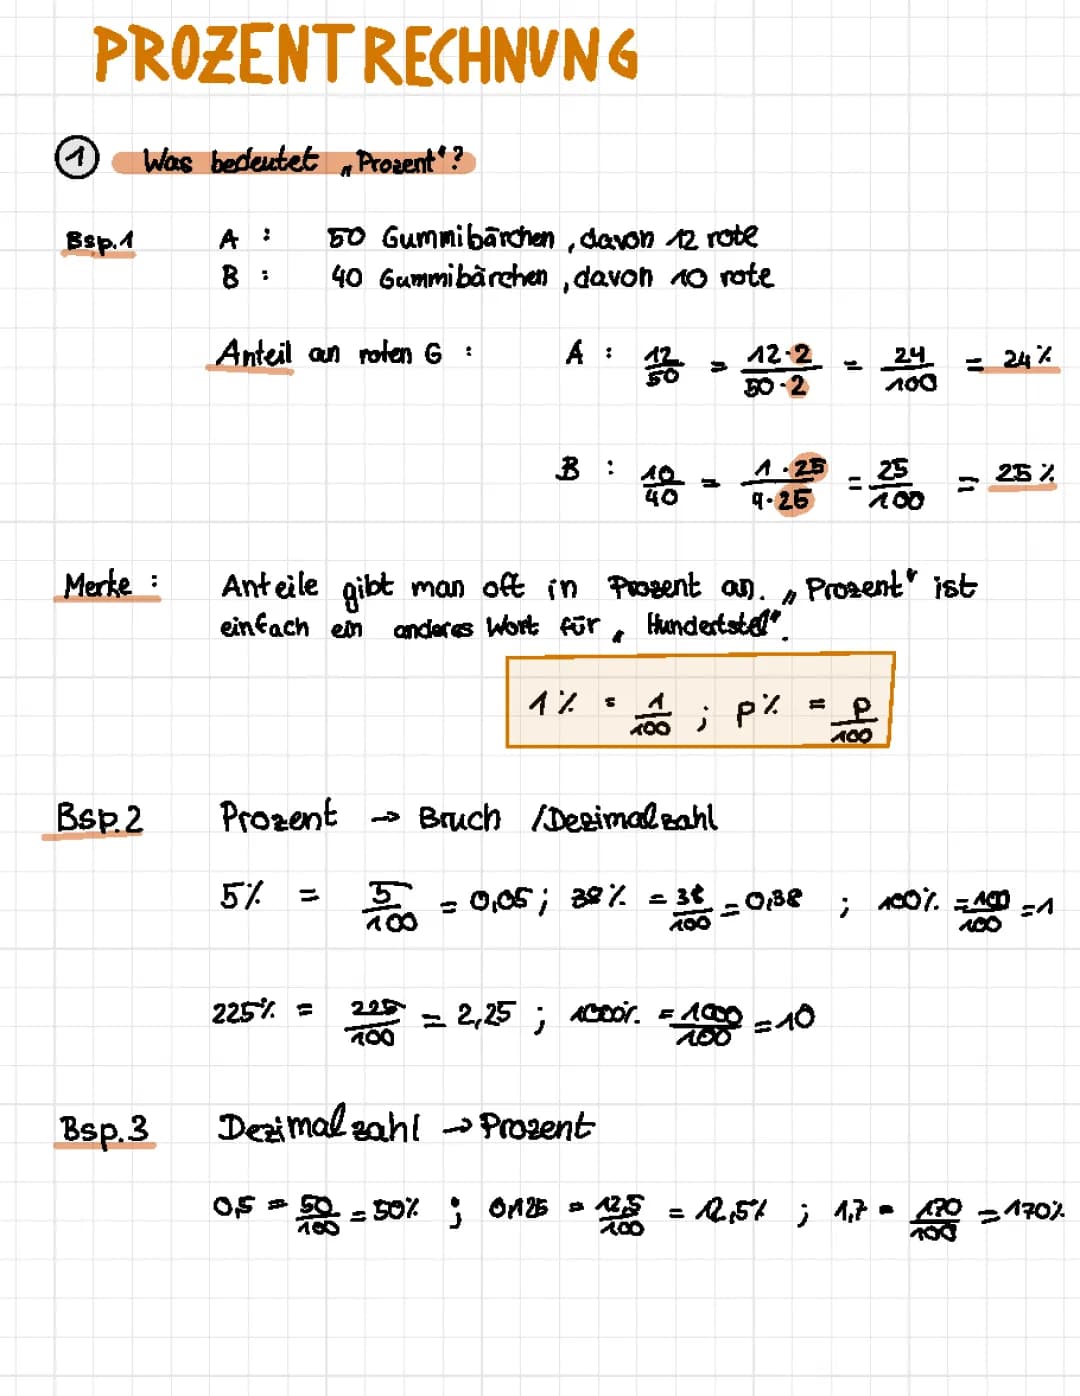 PROZENTRECHNUNG
1 Was bedeutet „Prozent"?
Bsp.1 A : 50 Gummibärchen, davon 12 rote
B : 40 Gummibärchen, davon 10 rote
Anteil an roten G : A : 12/50 = 12·2/50·2 = 24/100 = 24%
B : 10/40 = 1·25/4·25 = 25/100 = 25%
Merke : Anteile gibt man oft in Prozent an. „Prozent" ist
einfach ein anderes Wort für „Hundertstel".
1% = 1/100 ; p% = p/100
Bsp.2 Prozent → Bruch /Dezimalzahl
5% = 5/100 = 0,05 ; 38% = 38/100 = 0,38 ; 100% = 100/100 = 1
225% = 225/100 = 2,25 ; 1000% = 1000/100 = 10
Bsp.3 Dezimalzahl → Prozent
0,5 = 50/100 = 50% ; 0,125 = 12,5/100 = 12,5% ; 1,7 = 170/100 = 170%